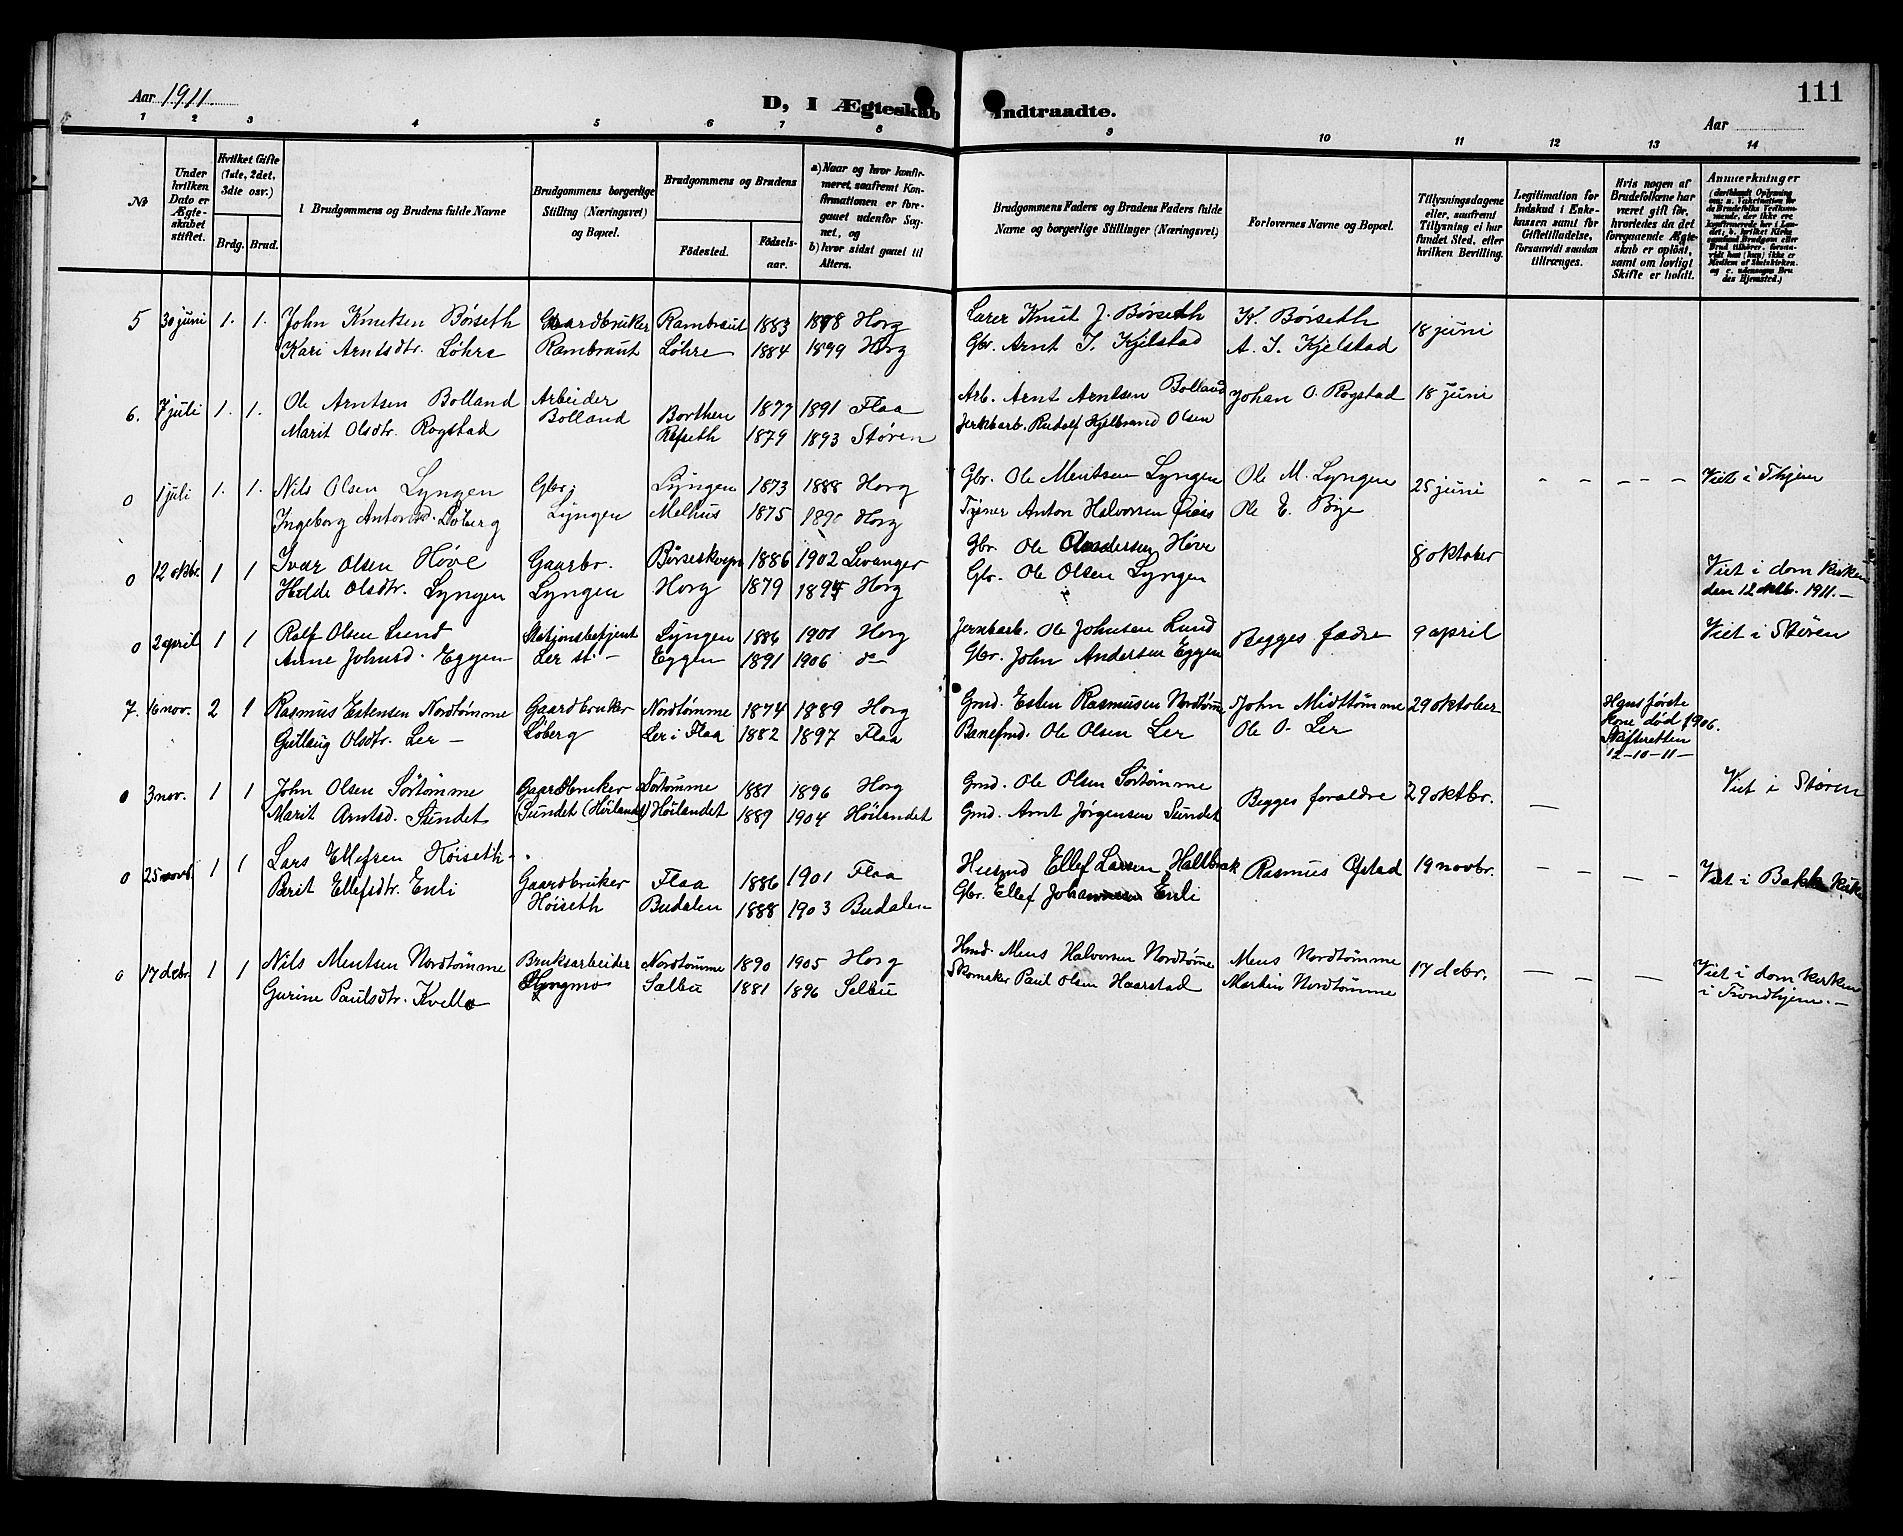 Aar 1911.
D, I Ægteskab Indtraadte.
111
Aar
1 2 3 4 5 6 7 8 9 10 11 12 13 14
№
Under hvilken Dato er Ægteskabet stiftet.
Hvilket Gifte (1ste, 2det, 3dte osv.)
Brdg. Brud.
Brudgommens og Brudens fulde Navne
Brudgommens borgerlige Stilling (Næringsvei) og Bopæl.
Brudgommens og Brudens
Födested. Födsels-aar.
a) Naar og hvor konfirmeret, saafremt Konfirmationen er foregaaet udenfor Sognet, og
b) hvor sidst gaaet til Alters.
Brudgommens Faders og Brudens Faders fulde Navne og borgerlige Stillinger (Næringsvei)
Forlovernes Navne og Bopæl.
Tillysningsdagene eller, saafremt Tillysning ei har fundet Sted, efter hvilken Bevilling.
Legitimation for Indskud i Enkekassen samt for Giftetilladelse, forsaavidt saadan tiltrænges.
Hvis nogen af Brudefolkene har været gift før, hvorledes da det foregaaende Ægteskab er opløst, samt om lovligt Skifte er holdt.
Anmærkninger
5 30 juni 1. 1. John Knutsen Børseth Gaardbruker Rambraut 1883 1898 Horg Lærer Knut J. Børseth K. Børseth 18 juni
Kari Arntsdtr. Løhre Rambraut Løhre 1884 1899 Horg Gbr. Arnt I. Kjelstad A. I. Kjelstad
6. 7 juli 1. 1. Ole Arntsen Bolland Arbeider Borthen 1877 1891 Flaa Arb. Arnt Arntsen Bolland Johan O. Rogstad 18 juni
Marit Olsdtr. Rogstad Bolland Refseth 1879 1893 Støren Jernbarb. Rudolf Hjelbrand Olsen
0 1 juli 1. 1. Nils Olsen Lyngen Gbr. Lyngen 1873 1888 Horg Gbr. Ole Mentsen Lyngen Ole M. Lyngen 25 juni - - - - Viet i Thjem
Ingeborg Løberg Lyngen Melhus 1875 Horg Tjener Anton Halvorsen Ole E. Bye
0 12 oktbr. 1 1 Ivar Olsen Høve Gaarbr. Børseskogn 1886 1902 Levanger Gbr. Ole Andersen Høve 8 oktober Viet i dom kirken
Hilde Olsdtr. Lyngen Lyngen Horg 1879 1894 Horg Gbr. Ole Olsen Lyngen den 12 oktb. 1911. -
0 2 april 1 1 Rolf Olsen Lund Stationsbetjent Lyngen 1886 1901 Horg Jernbarb. Ole Johnsen Lund Begges fædre 9 april Viet i Støren
Anne Johnsd. Eggen Ler st - Eggen 1891 1906 do Gbr. John Andersen Eggen
7. 16 nov. 2 1 Rasmus Estensen Nordtømme Gaardbruker Nordtømme 1874 1889 Horg Gmd. Esten Rasmusen Nordtømme John Midttømme 29 oktober Hans første Kone død 1906. Skifteretten 12-10-11 -
Gullaug Olsdtr. Ler - Løberg Ler i Flaa 1882 1897 Flaa Banefmd. Ole Olsen Ler Ole O. Ler
0 3 nov. 1 1 John Olsen Sørtømme Gaardbruker Sørtømme 1881 1896 Horg Gmd. Ole Olsen Sørtømme Begges foraldre 29 oktbr. - Viet i Støren
Marit Arntsd. Sundet Sundet (Høilandet) Høilandet 1889 1904 Høilandet Gmd. Arnt Jørgensen Sundet
0 25 novb. 1 1 Lars Ellefsen Høiseth Gaardbruker Flaa 1886 1901 Flaa Husmd Ellef Larsen Haltbrak Rasmus Øfstad 19 novbr. - - - - Viet i Bakke kirke
Berit Ellefsdtr. Enli Høiseth Budalen 1888 1903 Budalen Gbr. Ellef Johannesen Enli
0 17 debr. 1 1 Nils Mentsen Nordtømme Bruksarbeider Nordtømme 1890 1905 Horg Hmd. Mens Halvorsen Nordtømme Mens Nordtømme 17 debr. - - - Viet i dom kirken
Gurine Paulsdtr. Kvello Lyngmo Selbu 1881 1896 Selbu Skomaker Paul Olsen Haarstad Martin Nordtømme i Trondhjem. -